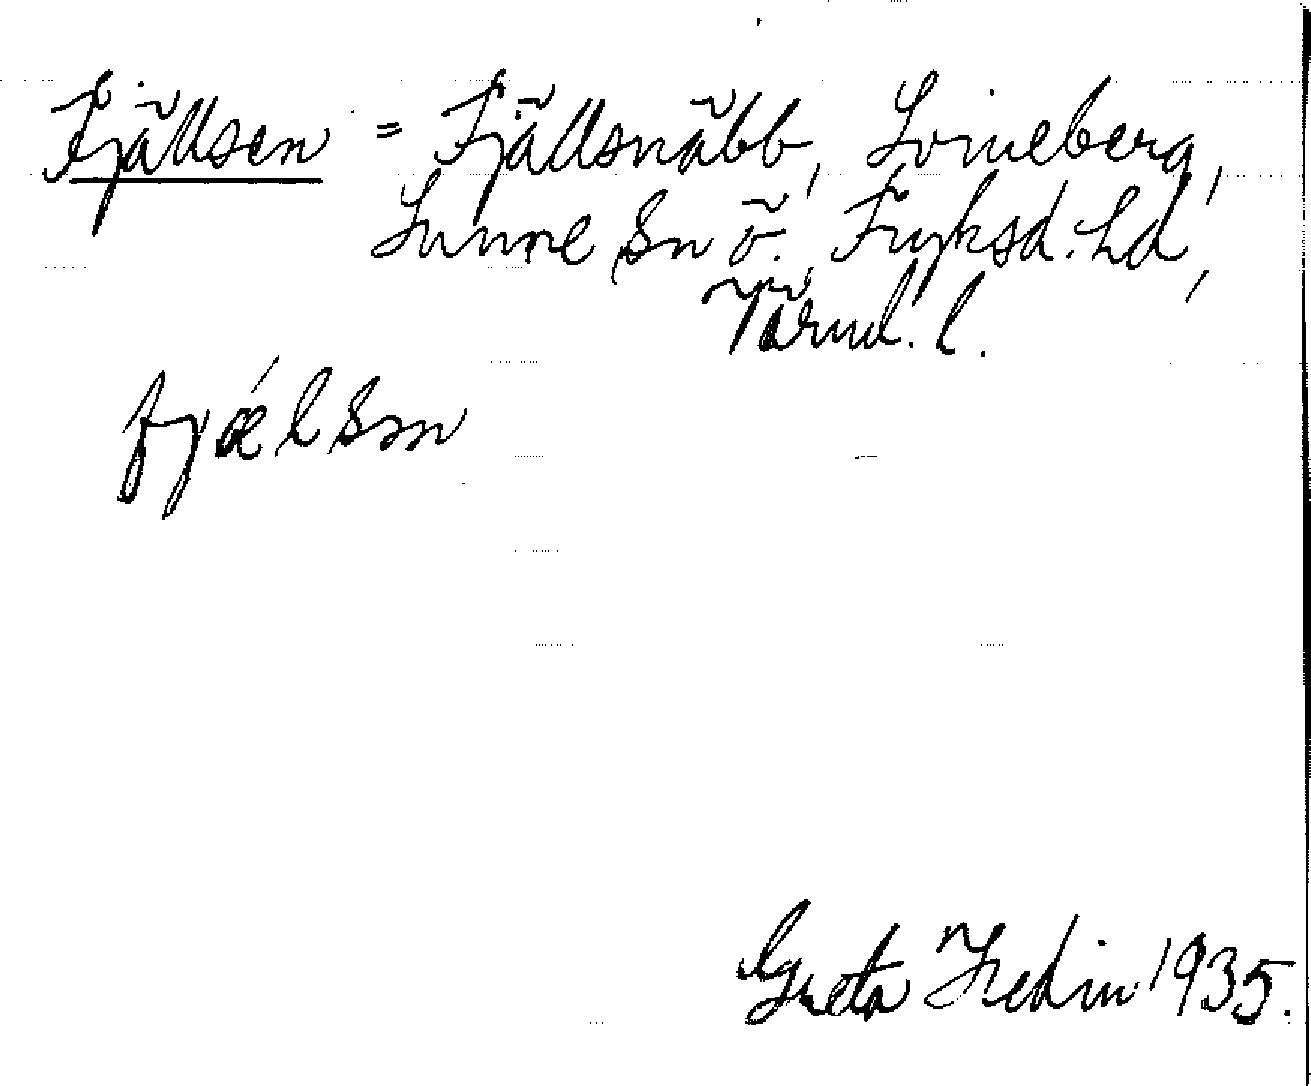 Fjällsen = Fjällsnäbb, Svineberg,
Sunne sn ö. Fryksd. hd,
Värml. l.
fjælsņ
Greta Hedin 1935.